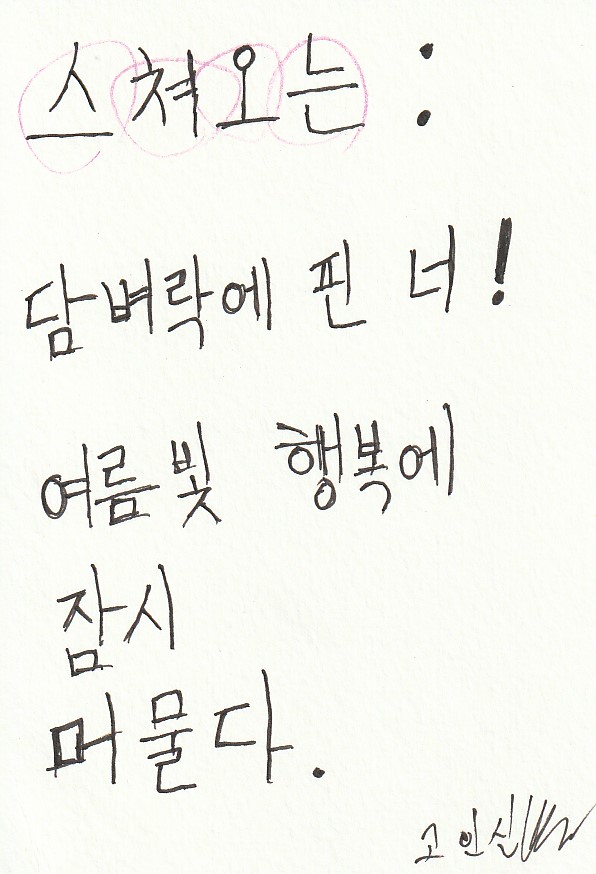 스쳐오는 :
담벼락에 핀 너!
여름빛 행복에
잠시
머물다.
고인신